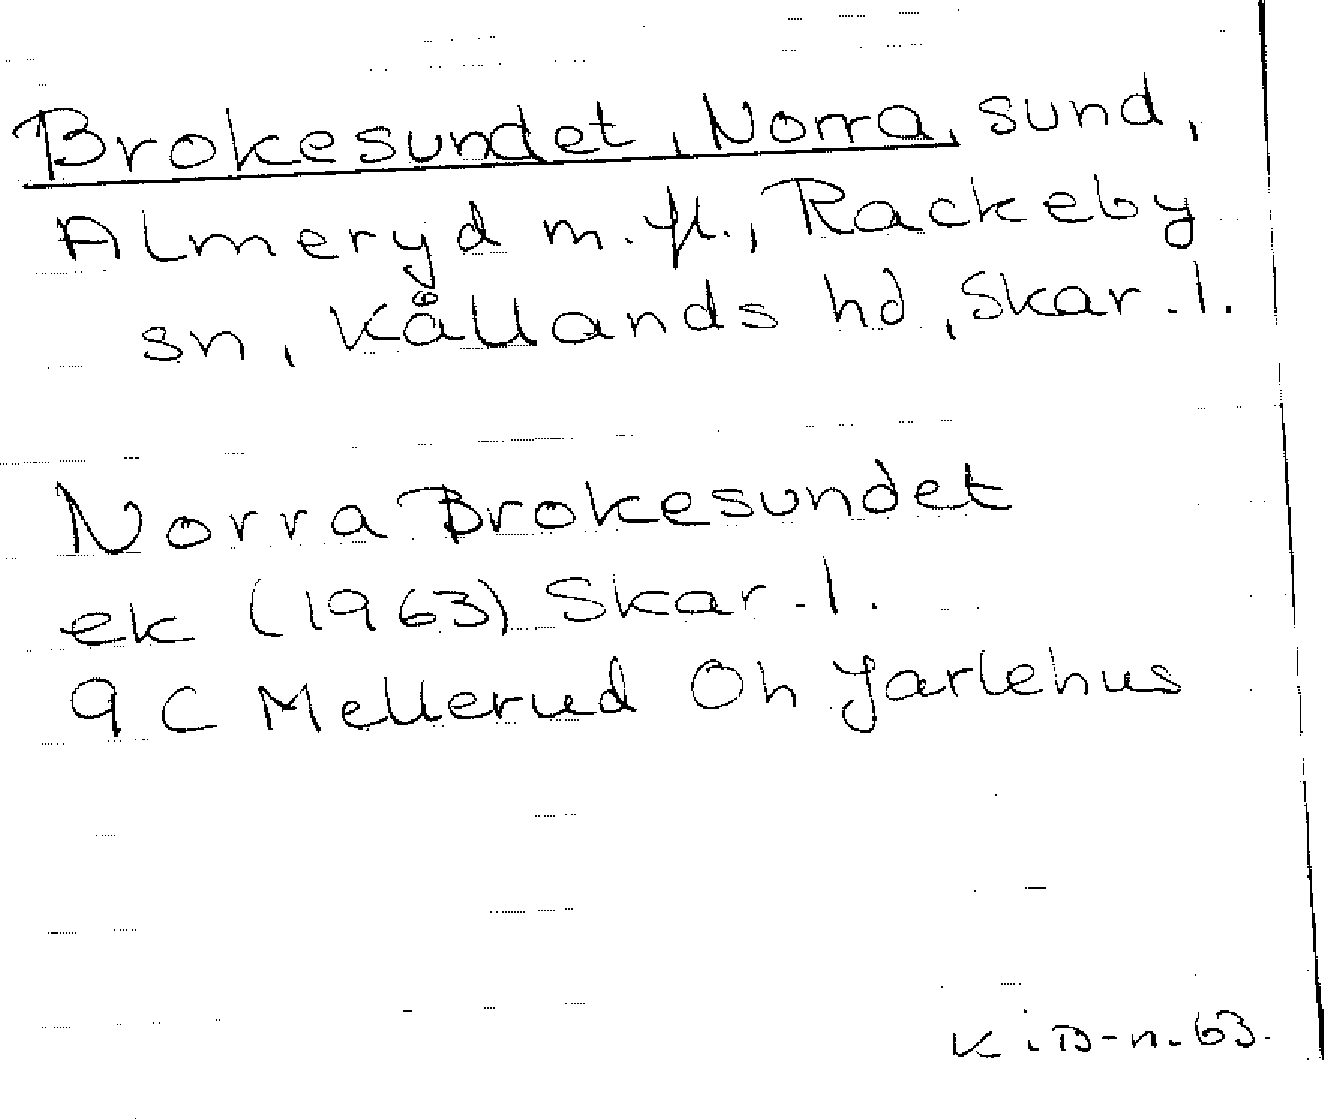 Brokesundet, Norra, sund,
Almeryd m.fl., Rackeby
sn, Kållands hd, Skar.l.
Norra Brokesundet
ek (1963) Skar.l.
9 C Mellerud Oh Jarlehus
K i D-n. 63.